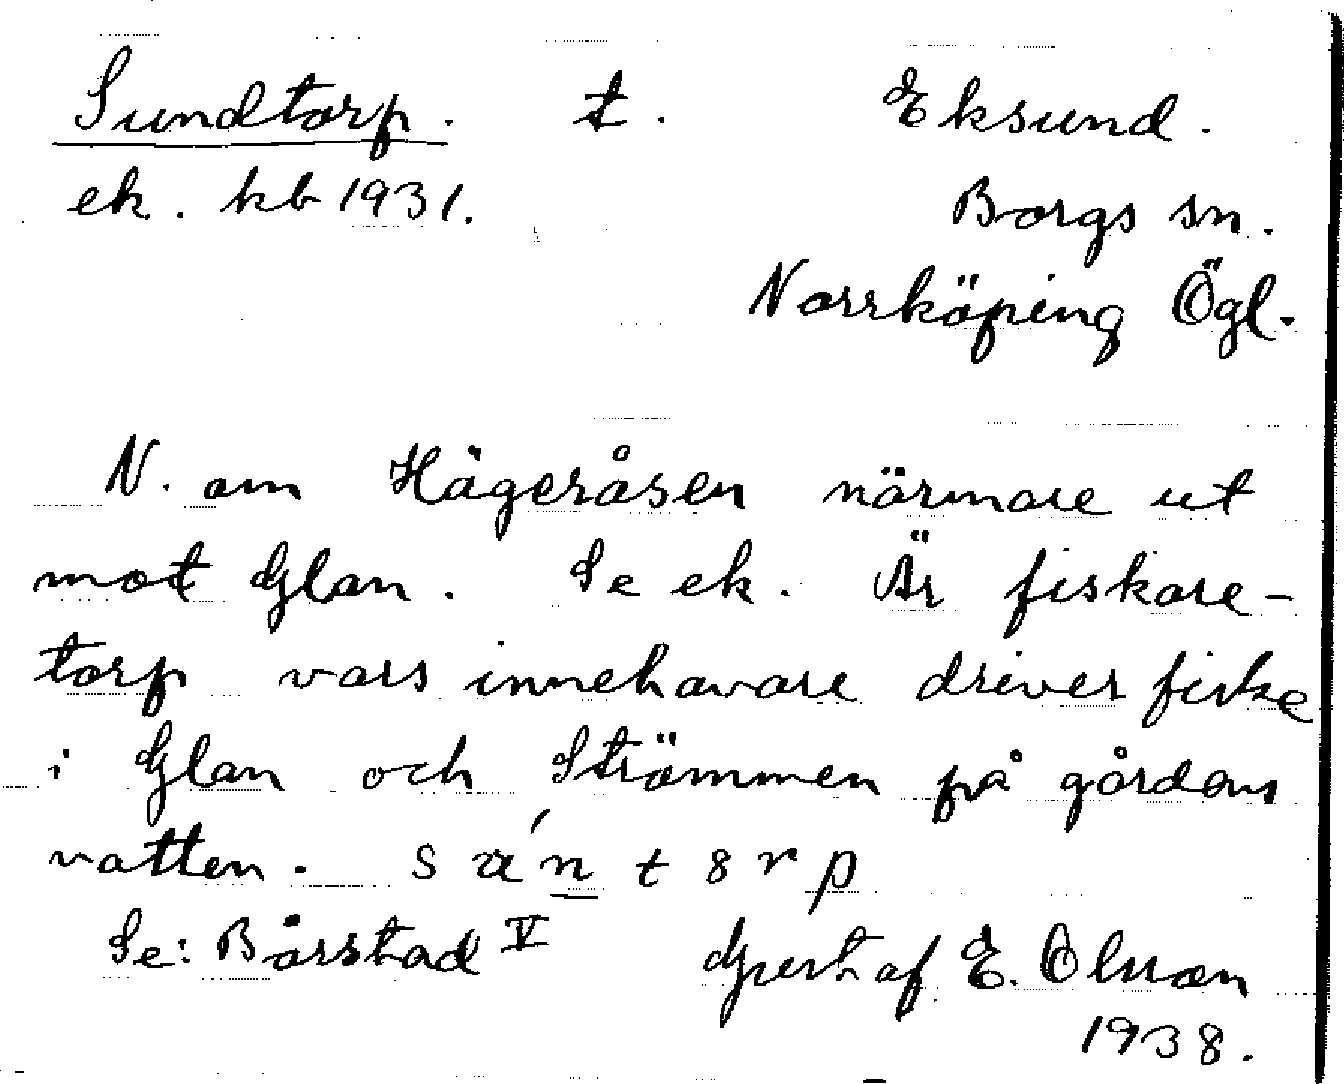 Sundtorp. t. Eksund.
ek. kb 1931. Borgs sn.
Norrköping Ögl.
N. om Hägeråsen närmare ut
mot Glan. Se ek. Är fiskare-
torp vars innehavare driver fiske
i Glan och Strömmen på gårdens
vatten. s u ́n t 8 r p
Se: Bårstad V Gustaf E. Olsson
1938.